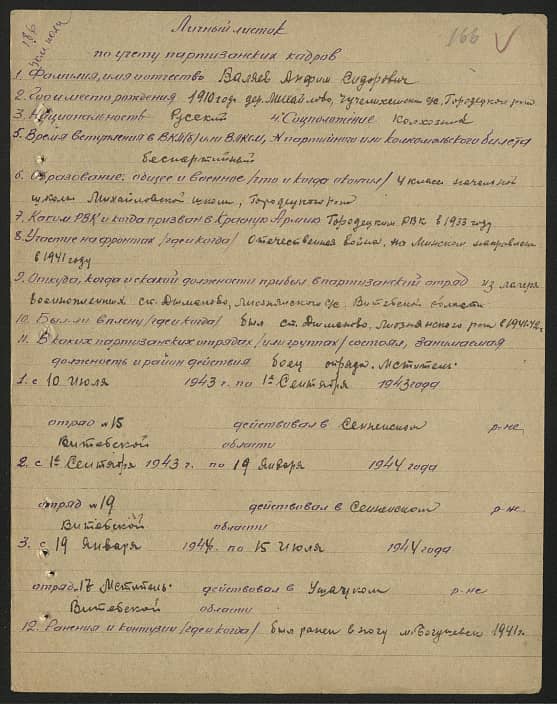 186
166
Личный листок
по учету партизанских кадров
1. Фамилия, имя и отчество Валяев Анфим Сидорович
2. Год и место рождения 1910 год дер. Михайлово, с/с. Городецкой
3. Национальность Русский 4. Соцположение Колхозник
5. Время вступления в ВКП(б) или ВЛКСМ, N партийного или комсомольского билета
беспартийный
6. Образование: общее и военное /что и когда окончил/ 4 класса начальной
школы Михайловской школы, Городецкой
7. Каким РВК и когда призван в Красную Армию Городецким РВК в 1933 году
8. Участие на фронтах /где и когда/ Отечественная война, на Минском направлении
в 1941 году
9. Откуда, когда и с какой должности прибыл в партизанский отряд из лагеря
военнопленных ст. Дыманово, Лиозненского с/с. Витебской области
10. Был-ли в плену /где и когда/ был ст. Дыманово, Лиознянского в 1941-42
11. В каких партизанских отрядах /или группах/ состоял, занимаемая
должность и район действия боец отряда "Мститель"
1. с 10 Июля 1943 г. по 1е Сентября 1943 года
отряд №15 действовал в Сенненском р-не
Витебской области
2. с 1е Сентября 1943 г. по 19 Января 1944 года
отряд №19 действовал в Сенненском р-не
Витебской области
3. с 19 Января 1944 г. по 15 Июля 1944 года
отряд 17 Мститель действовал в Ушачском р-не
Витебской области
12. Ранения и контузии /где и когда/ был ранен в ногу м. Богушевск 1941 г.